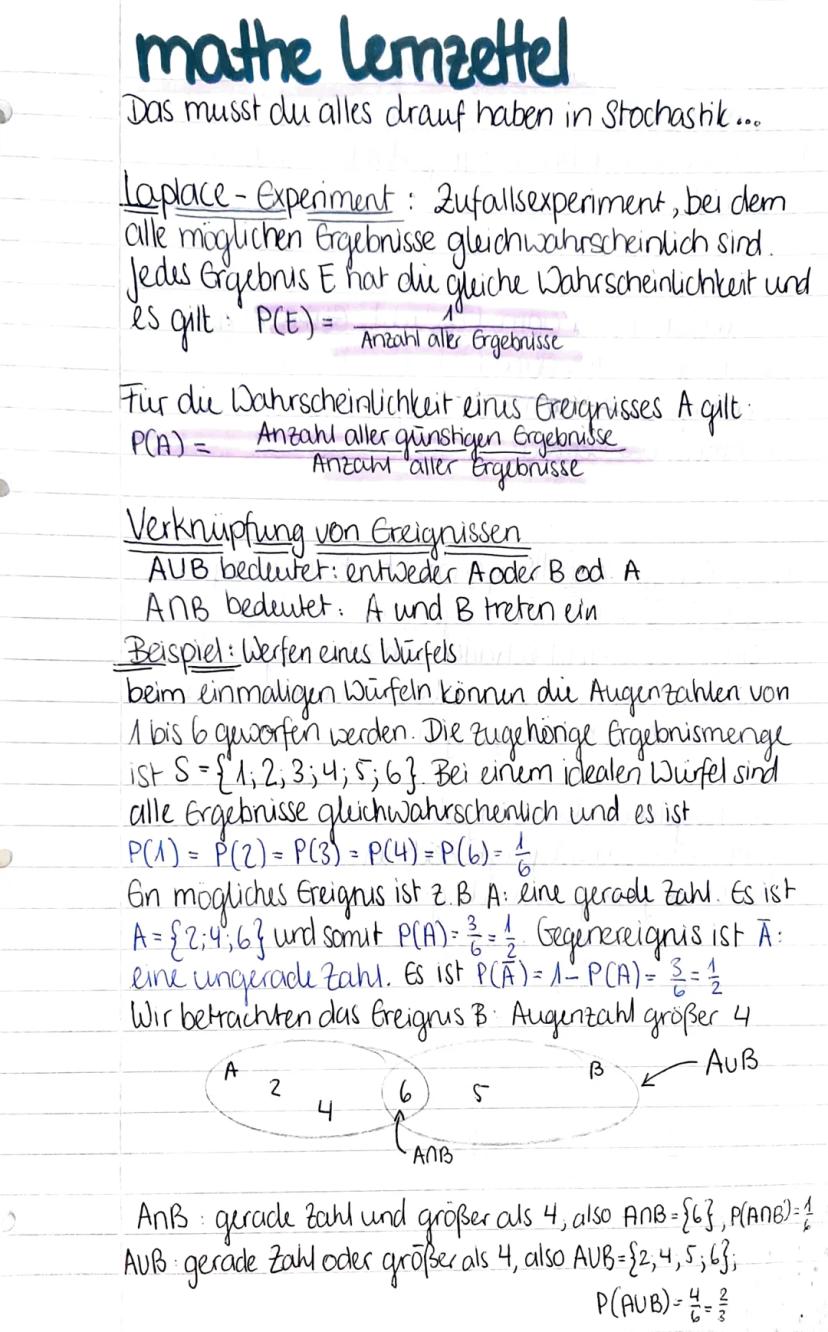 mathe lernzettel
Das musst du alles drauf haben in Stochastik...
Laplace-Experiment: Zufallsexperiment, bei dem
alle möglichen Ergebnisse gleichwahrscheinlich sind.
Jedes Ergebnis E hat die gleiche Wahrscheinlichkeit und
es gilt: P(E) = 1 / Anzahl aller Ergebnisse
Für die Wahrscheinlichkeit eines Ereignisses A gilt:
P(A) = Anzahl aller günstigen Ergebnisse / Anzahl aller Ergebnisse
Verknüpfung von Ereignissen
A∪B bedeutet: entweder A oder B od. A
A∩B bedeutet: A und B treten ein
Beispiel: Werfen eines Würfels
beim einmaligen Würfeln können die Augenzahlen von
1 bis 6 geworfen werden. Die zugehörige Ergebnismenge
ist S = {1; 2; 3; 4; 5; 6}. Bei einem idealen Würfel sind
alle Ergebnisse gleichwahrschenlich und es ist
P(1) = P(2) = P(3) = P(4) = P(6) = 1/6
Ein mögliches Ereignis ist z.B A: eine gerade Zahl. Es ist
A = {2; 4; 6} und somit P(A) = 3/6 = 1/2. Gegenereignis ist Ā:
eine ungerade Zahl. Es ist P(Ā) = 1 - P(A) = 3/6 = 1/2
Wir betrachten das Ereignis B: Augenzahl größer 4
A 2 4 6 5 B A∪B
A∩B
A∩B: gerade Zahl und größer als 4, also A∩B = {6}, P(A∩B) = 1/6
A∪B: gerade Zahl oder größer als 4, also A∪B = {2; 4, 5; 6};
P(A∪B) = 4/6 = 2/3